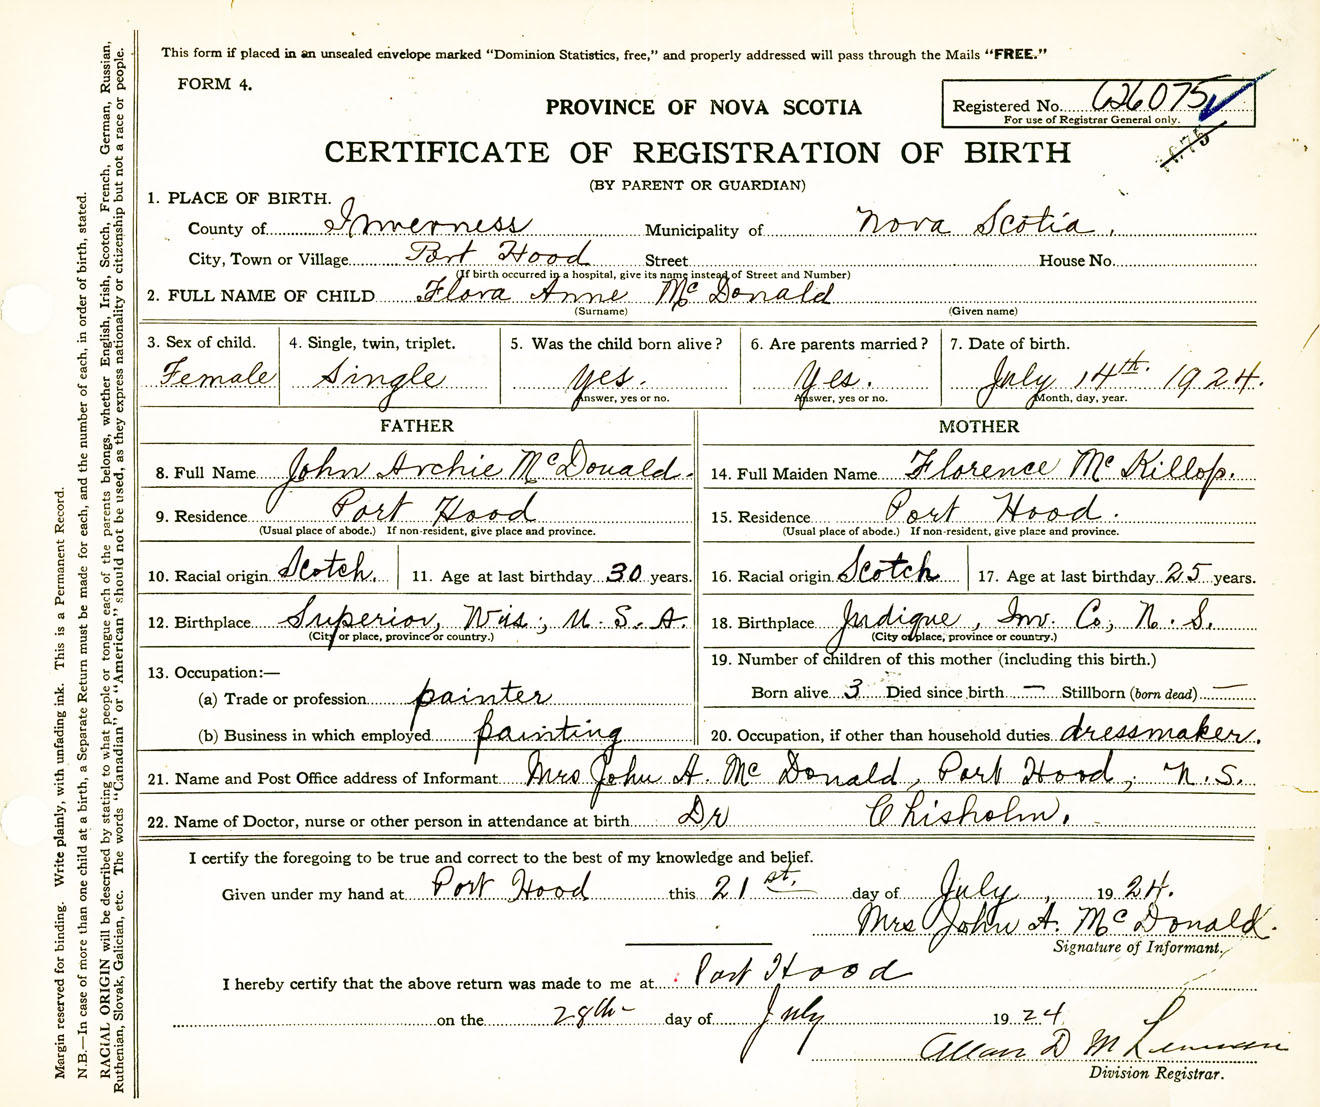 This form if placed in an unsealed envelope marked "Dominion Statistics, free," and properly addressed will pass through the Mails "FREE."
FORM 4.
PROVINCE OF NOVA SCOTIA
Registered No. 626075
For use of Registrar General only.
CERTIFICATE OF REGISTRATION OF BIRTH
(BY PARENT OR GUARDIAN)
1. PLACE OF BIRTH.
County of Inverness Municipality of Nova Scotia.
City, Town or Village Port Hood Street House No.
(If birth occurred in a hospital, give its name instead of Street and Number)
2. FULL NAME OF CHILD Flora Anne Mc Donald
(Surname) (Given name)
3. Sex of child. 4. Single, twin, triplet. 5. Was the child born alive? 6. Are parents married? 7. Date of birth.
Female Single Yes. Yes. July 14th. 1924.
Answer, yes or no. Answer, yes or no. Month, day, year.
FATHER MOTHER
8. Full Name John Archie McDonald. 14. Full Maiden Name Florence Mc Killop.
9. Residence Port Hood 15. Residence Port Hood.
(Usual place of abode.) If non-resident, give place and province. (Usual place of abode.) If non-resident, give place and province.
10. Racial origin Scotch. 11. Age at last birthday 30 years. 16. Racial origin Scotch 17. Age at last birthday 25 years.
12. Birthplace Superior, Wis., U. S. A. 18. Birthplace Judique, Inv. Co., N. S.
(City or place, province or country.) (City or place, province or country.)
13. Occupation:— 19. Number of children of this mother (including this birth.)
(a) Trade or profession painter Born alive 3 Died since birth — Stillborn (born dead) —
(b) Business in which employed painting 20. Occupation, if other than household duties dressmaker.
21. Name and Post Office address of Informant Mrs John A. Mc Donald, Port Hood, N. S.
22. Name of Doctor, nurse or other person in attendance at birth Dr Chisholm.
I certify the foregoing to be true and correct to the best of my knowledge and belief.
Given under my hand at Port Hood this 21st. day of July, 1924.
Mrs John A. McDonald.
Signature of Informant.
I hereby certify that the above return was made to me at Port Hood
on the 28th day of July 1924
Allan D M
Division Registrar.
Margin reserved for binding. Write plainly, with unfading ink. This is a Permanent Record.
N.B.—In case of more than one child at a birth, a Separate Return must be made for each, and the number of each, in order of birth, stated.
RACIAL ORIGIN will be described by stating to what people or tongue each of the parents belongs, whether English, Irish, Scotch, French, German, Russian,
Ruthenian, Slovak, Galician, etc. The words "Canadian" or "American" should not be used, as they express nationality or citizenship but not a race or people.